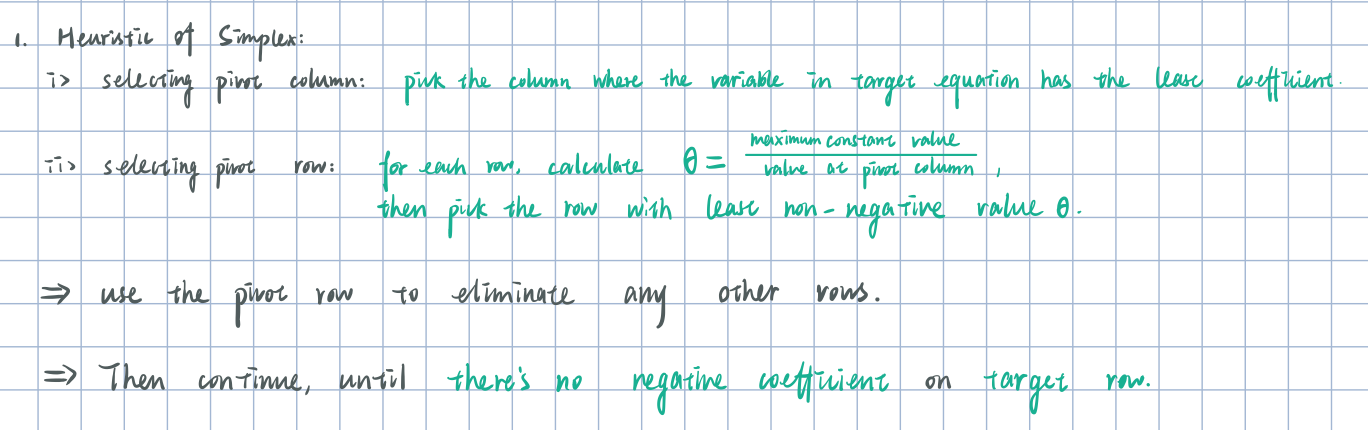 1. Heuristic of Simplex:
i> selecting pivot column: pick the column where the variable in target equation has the least coefficient.
ii> selecting pivot row: for each row, calculate θ = maximum constant value / value at pivot column ,
then pick the row with least non-negative value θ.
⇒ use the pivot row to eliminate any other rows.
⇒ Then continue, until there's no negative coefficient on target row.